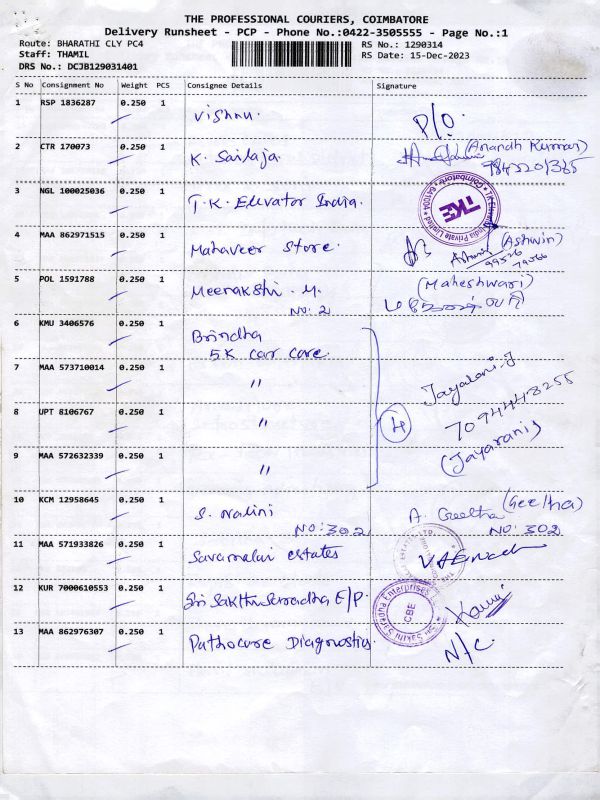 THE PROFESSIONAL COURIERS, COIMBATORE
Delivery Runsheet - PCP - Phone No.:0422-3505555 - Page No.:1
Route: BHARATHI CLY PC4 RS No.: 1290314
Staff: THAMIL RS Date: 15-Dec-2023
DRS No.: DCJB129031401
S No Consignment No Weight PCS Consignee Details Signature
1 RSP 1836287 0.250 1 Vishnu. P/O.
2 CTR 170073 0.250 1 K. Sailaja. (Anandh Kumar)
3 NGL 100025036 0.250 1 T.K. Elevator India. TKE
4 MAA 862971515 0.250 1 Mahaveer Store. (Ashwin)
5 POL 1591788 0.250 1 Meenakshi. M. (Maheshwari)
NO: 2
6 KMU 3406576 0.250 1 Brindha
5K Car Care.
7 MAA 573710014 0.250 1 〃 Jayarani.J
8 UPT 8106767 0.250 1 〃 4 7094448255
9 MAA 572632339 0.250 1 〃 (Jayarani)
10 KCM 12958645 0.250 1 S. Nalini A. Geetha (Geetha)
NO: 302 NO: 302
11 MAA 571933826 0.250 1 Savamalai estates
12 KUR 7000610553 0.250 1 Sri Sakthi Saradha E/P. CBE
13 MAA 862976307 0.250 1 Pathocare Diagnostics. N/C.